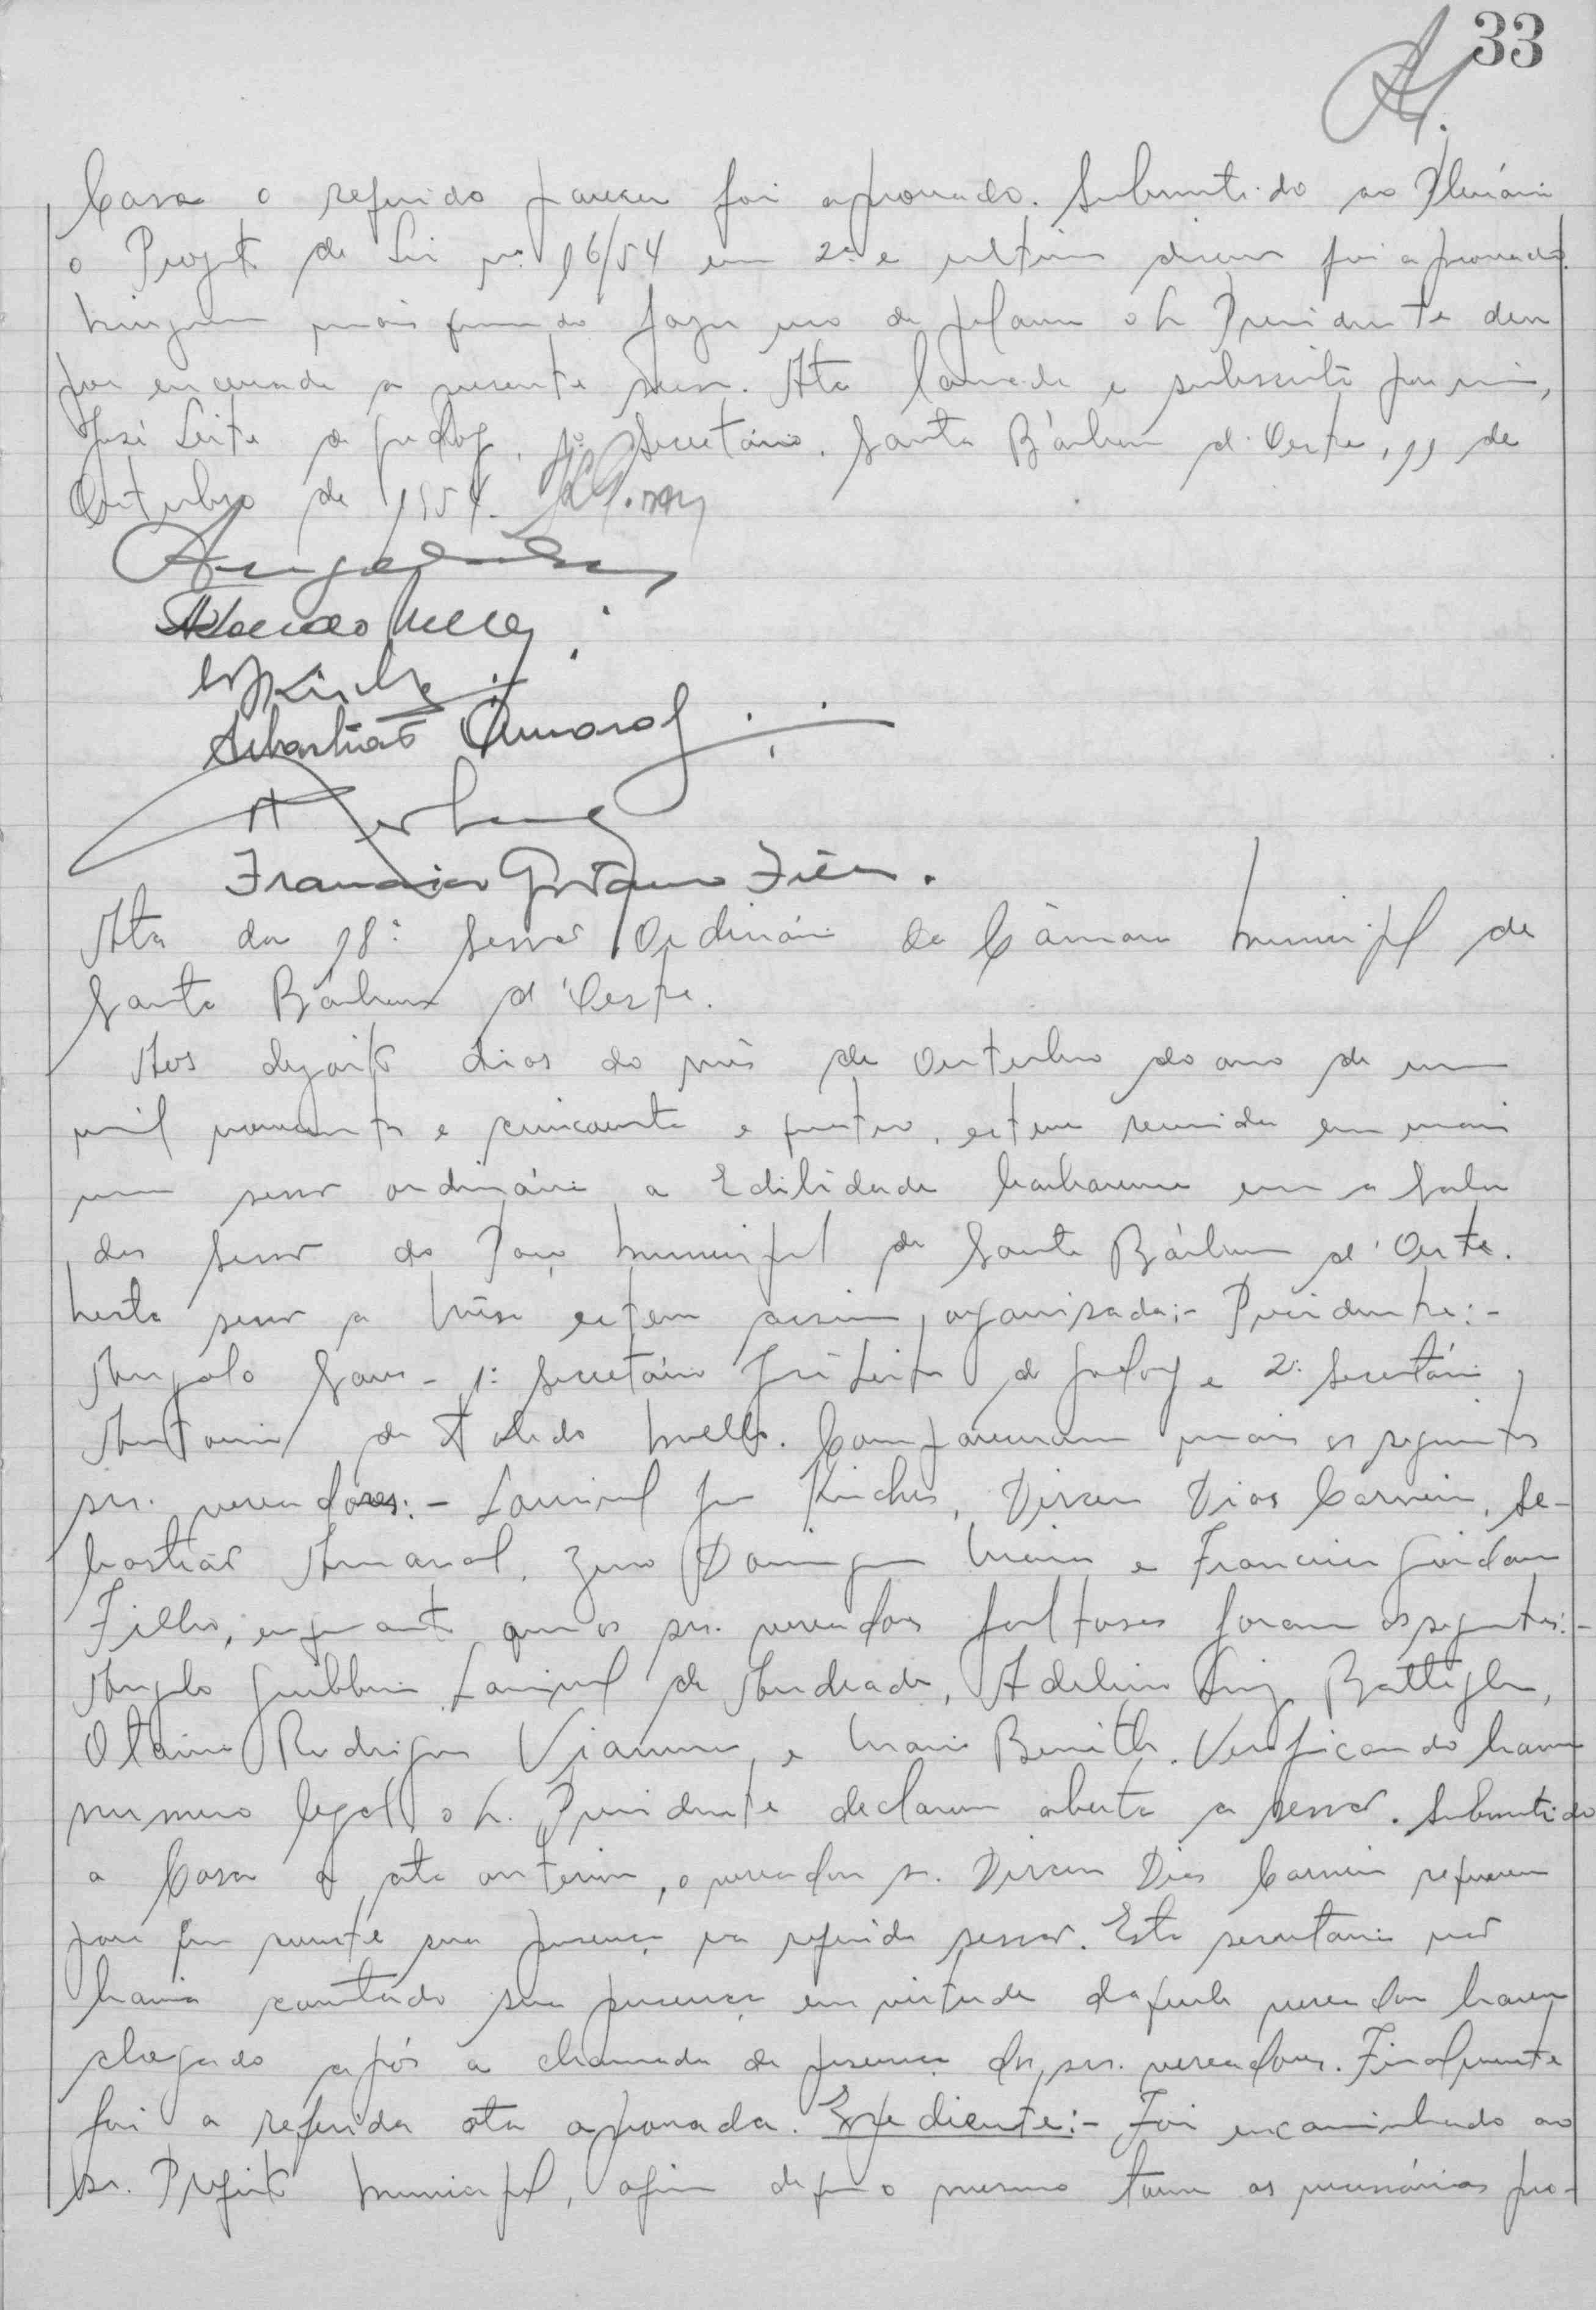 33
Casa o referido parecer foi aprovado. Submetido ao Plenário
o Projeto de Lei nº 16/54 em 2ª e ultima discussão foi aprovado.
Ninguem mais querendo fazer uso da palavra o Sr Presidente deu
por encerrada a presente sessão. Ata lavrada e subscrita por mim,
José Leite de Godoy, 1º Secretário. Santa Bárbara d'Oeste, 11 de
Outubro de 1954.
Sebastião Amaral
Francisco Giordano Filho.
Ata da 18ª Sessão Ordinária da Câmara Municipal de
Santa Bárbara d'Oeste.
Aos dezoito dias do mês de Outubro do ano de um
mil novecentos e cincoenta e quatro, esteve reunida em mais
uma sessão ordinária a Edilidade barbarense em a Sala
das Sessões do Paço Municipal de Santa Bárbara d'Oeste.
Nesta sessão a Mesa esteve assim organizada:- Presidente:-
Angelo Sans - 1º Secretário José Leite de Godoy e 2º Secretário
Antonio de Toledo Mello. Compareceram mais os seguintes
srs. vereadores:- Lourival Kinches, Dirceu Dias Carneiro, Se-
bastião Amaral, Zeno Domingues Maia e Francisco Giordano
Filho, enquanto que os srs. vereadores faltosos foram os seguintes:-
Angelo Giubbina, Lourival de Andrade, Adelino Luiz Battagla,
Otavio Rodrigues Vianna, e Mario Benith. Verificando haver
numero legal o Sr. Presidente declarou aberta a sessão. Submetida
a Casa a ata anterior, o vereador sr. Dirceu Dias Carneiro requereu
para que conste sua presença na referida sessão. Esta secretaria não
havia constado sua presença em virtude daquele vereador haver
chegado após a chamada de presença dos srs. vereadores. Finalmente
foi a referida ata aprovada. Expediente:- Foi encaminhado ao
sr. Prefeito Municipal, afim de que o mesmo tome as necessárias pro-